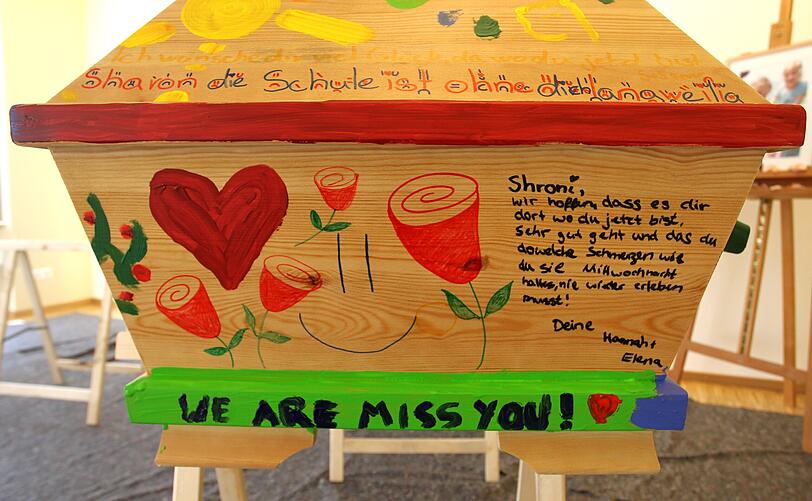 Ich wünsche dir viel jetzt bist
Sharon die Schule ist ohne dich langweilig
Shroni,
wir hoffen, dass es dir
dort wo du jetzt bist,
sehr gut geht und das du
solche Schmerzen wie
du sie Mittwochnacht
hattest, nie wieder erleben
musst!
Deine
Hannah +
Elena
WE ARE MISS YOU!